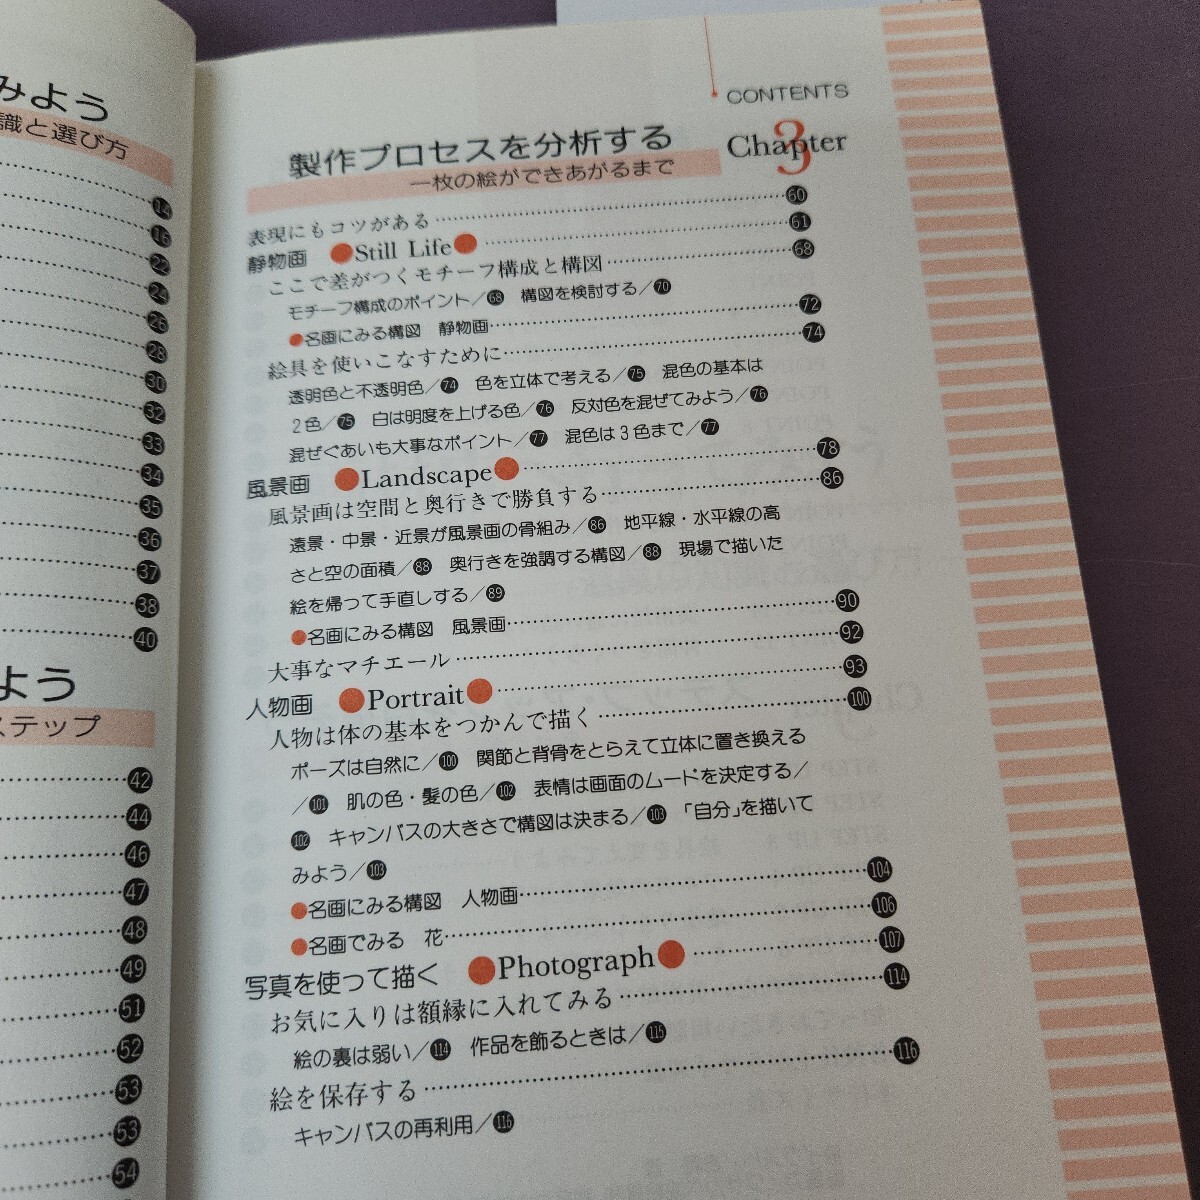 みよう
識と選び方
14
16
22
24
26
28
30
32
33
34
35
36
37
38
40
よう
ステップ
42
44
46
47
48
49
51
52
53
53
54
CONTENTS
製作プロセスを分析する Chapter 3
一枚の絵ができあがるまで
表現にもコツがある 60
静物画 ●Still Life● 61
ここで差がつくモチーフ構成と構図 68
モチーフ構成のポイント／68 構図を検討する／70
●名画にみる構図 静物画 72
絵具を使いこなすために 74
透明色と不透明色／74 色を立体で考える／75 混色の基本は
2色／75 白は明度を上げる色／76 反対色を混ぜてみよう／76
混ぜぐあいも大事なポイント／77 混色は3色まで／77
風景画 ●Landscape● 78
風景画は空間と奥行きで勝負する 86
遠景・中景・近景が風景画の骨組み／86 地平線・水平線の高
さと空の面積／88 奥行きを強調する構図／88 現場で描いた
絵を帰って手直しする／89
●名画にみる構図 風景画 90
大事なマチエール 92
人物画 ●Portrait● 93
人物は体の基本をつかんで描く 100
ポーズは自然に／100 関節と背骨をとらえて立体に置き換える
／101 肌の色・髪の色／102 表情は画面のムードを決定する／
102 キャンバスの大きさで構図は決まる／103 「自分」を描いて
みよう／103
●名画にみる構図 人物画 104
●名画でみる 花 106
写真を使って描く ●Photograph● 107
お気に入りは額縁に入れてみる 114
絵の裏は弱い／114 作品を飾るときは／115
絵を保存する 116
キャンバスの再利用／116